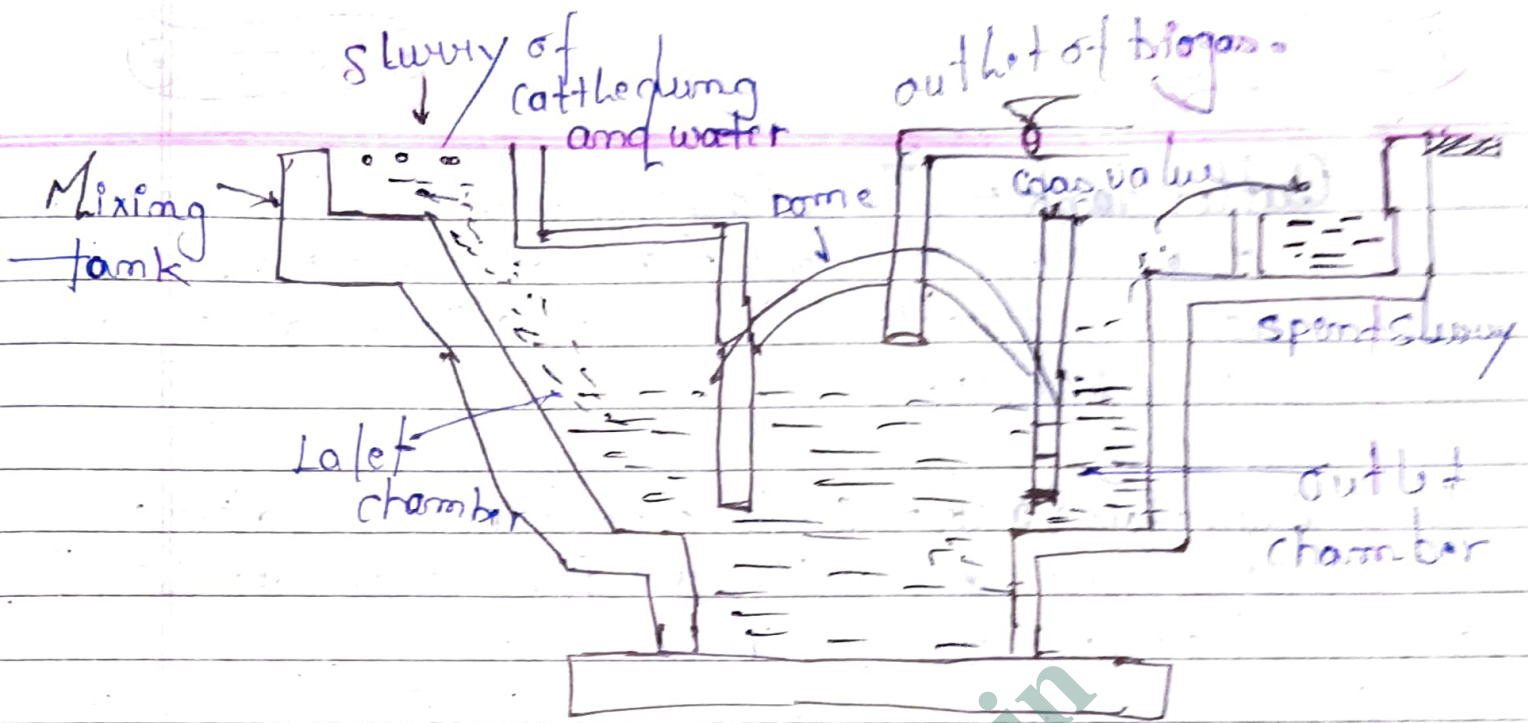 slurry of
cattledung
and water
outlet of biogas.
Mixing
tank
Dome
Gas value
spend slurry
Lalet
chamber
outlut
chamber
in